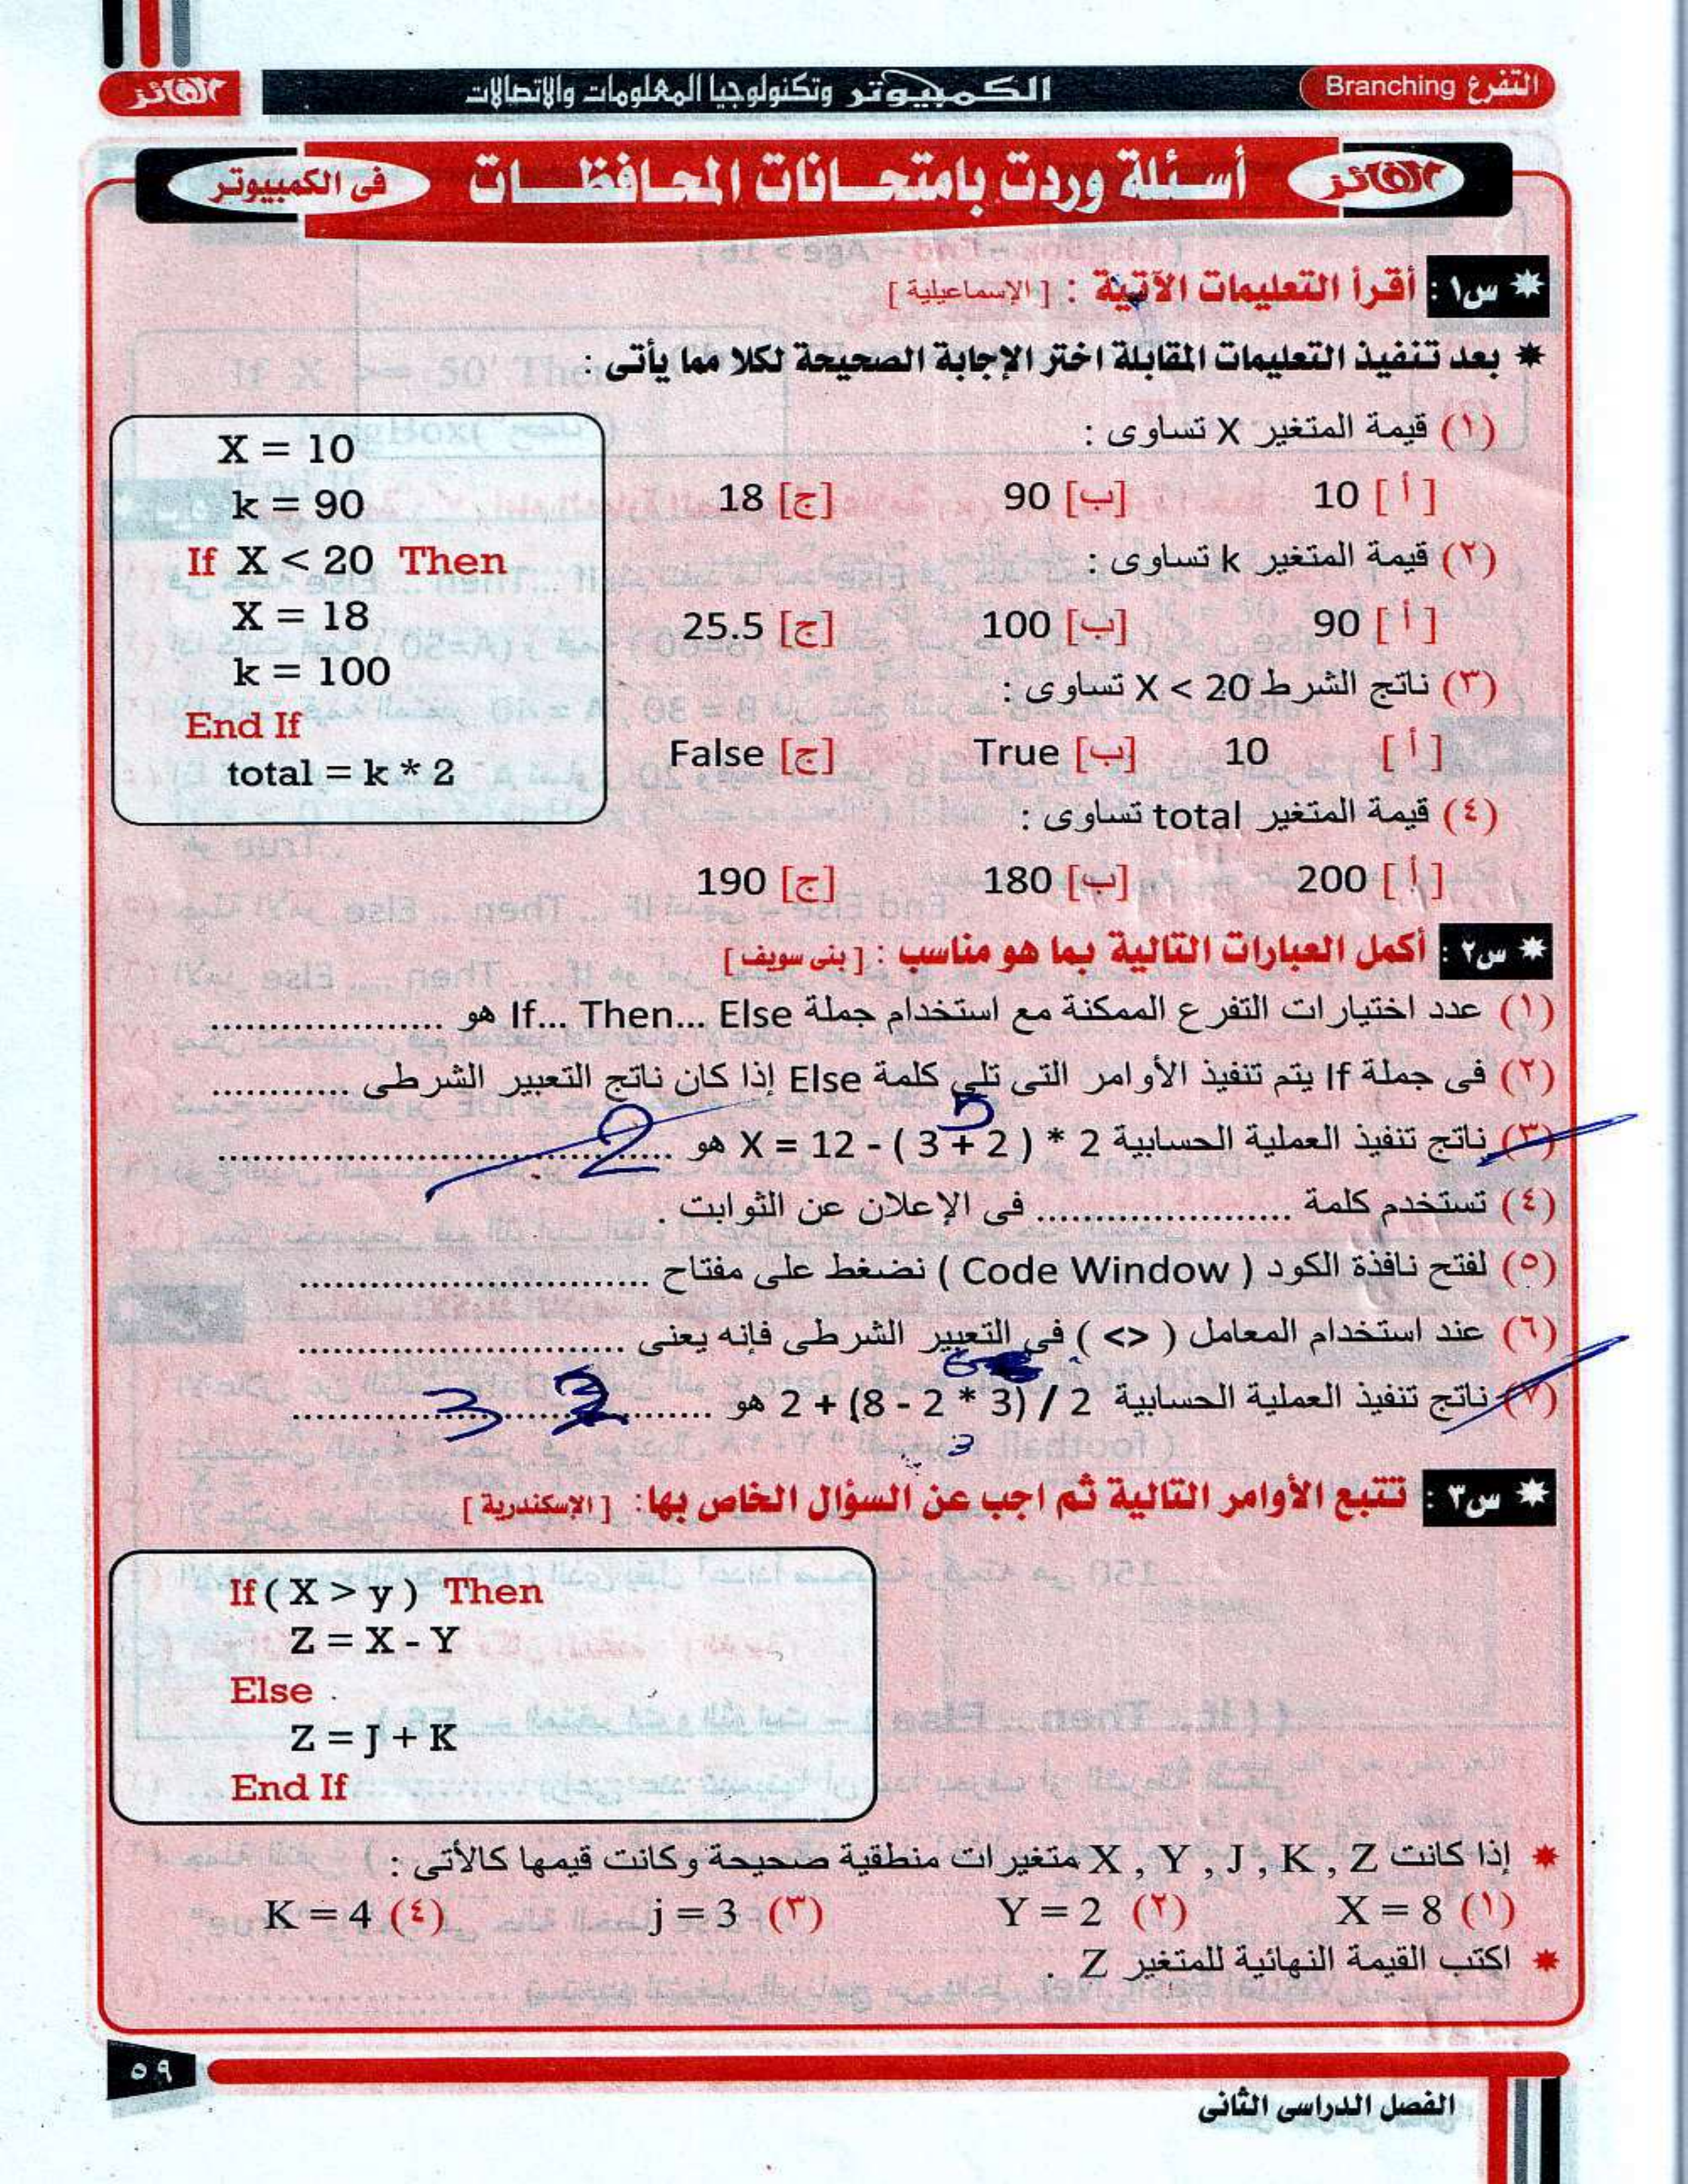 التفرع Branching
الكمبيوتر وتكنولوجيا المعلومات والاتصالات
الفائز
الفائز
أسئلة وردت بامتحانات المحافظات
فى الكمبيوتر
س١ : أقرأ التعليمات الآتية : [ الإسماعيلية ]
بعد تنفيذ التعليمات المقابلة اختر الإجابة الصحيحة لكلا مما يأتى :
(١) قيمة المتغير X تساوى :
[ أ ] 10 [ب] 90 [ج] 18
(٢) قيمة المتغير k تساوى :
[ أ ] 90 [ب] 100 [ج] 25.5
(٣) ناتج الشرط X < 20 تساوى :
[ أ ] 10 [ب] True [ج] False
(٤) قيمة المتغير total تساوى :
[ أ ] 200 [ب] 180 [ج] 190
X = 10
k = 90
If X < 20 Then
X = 18
k = 100
End If
total = k * 2
س٢ : أكمل العبارات التالية بما هو مناسب : [ بنى سويف ]
(١) عدد اختيارات التفرع الممكنة مع استخدام جملة If... Then... Else هو ....................
(٢) فى جملة If يتم تنفيذ الأوامر التى تلي كلمة Else إذا كان ناتج التعبير الشرطى ............
5
(٣) ناتج تنفيذ العملية الحسابية X = 12 - ( 3 + 2 ) * 2 هو .................... 2
(٤) تستخدم كلمة ...................... فى الإعلان عن الثوابت .
(٥) لفتح نافذة الكود ( Code Window ) نضغط على مفتاح ..............................
(٦) عند استخدام المعامل ( <> ) فى التعبير الشرطى فإنه يعنى ............................
6
(٧) ناتج تنفيذ العملية الحسابية 2 + (8 - 2 * 3) / 2 هو .................... 3
3
س٣ : تتبع الأوامر التالية ثم اجب عن السؤال الخاص بها : [ الإسكندرية ]
If ( X > y ) Then
Z = X - Y
Else
Z = J + K
End If
إذا كانت X , Y , J , K , Z متغيرات منطقية صحيحة وكانت قيمها كالأتى :
(١) X = 8 (٢) Y = 2 (٣) j = 3 (٤) K = 4
اكتب القيمة النهائية للمتغير Z .
٥٩
الفصل الدراسى الثانى